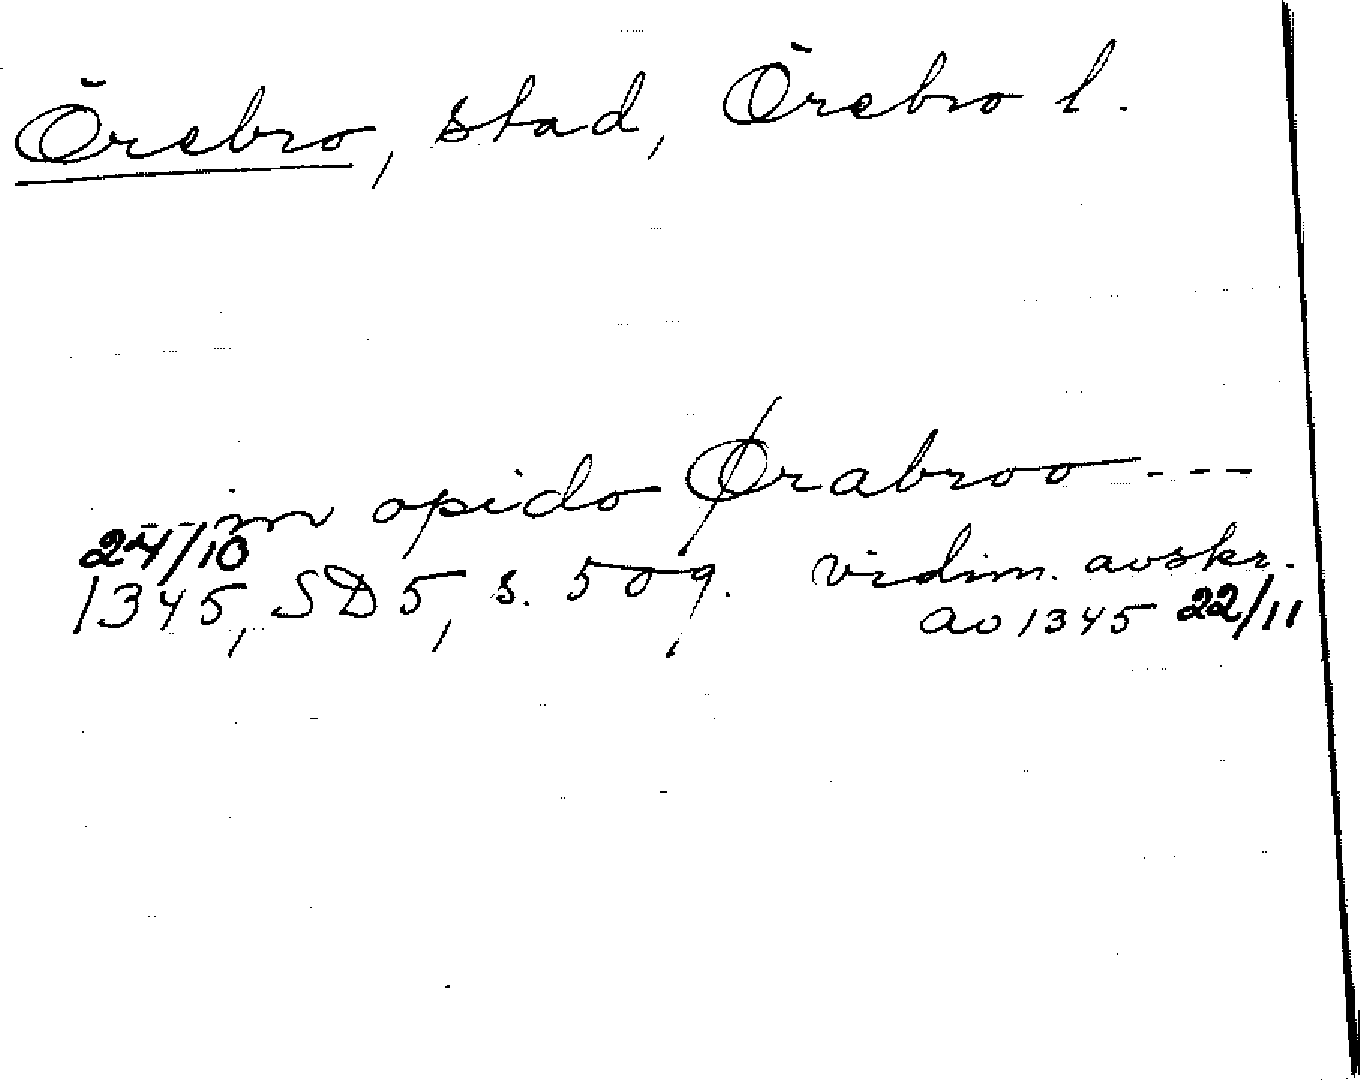 Örebro, stad, Örebro l.
in opido Ørabroo ---
24/10
1345, SD 5, s. 509. vidim. avskr.
av 1345 22/11